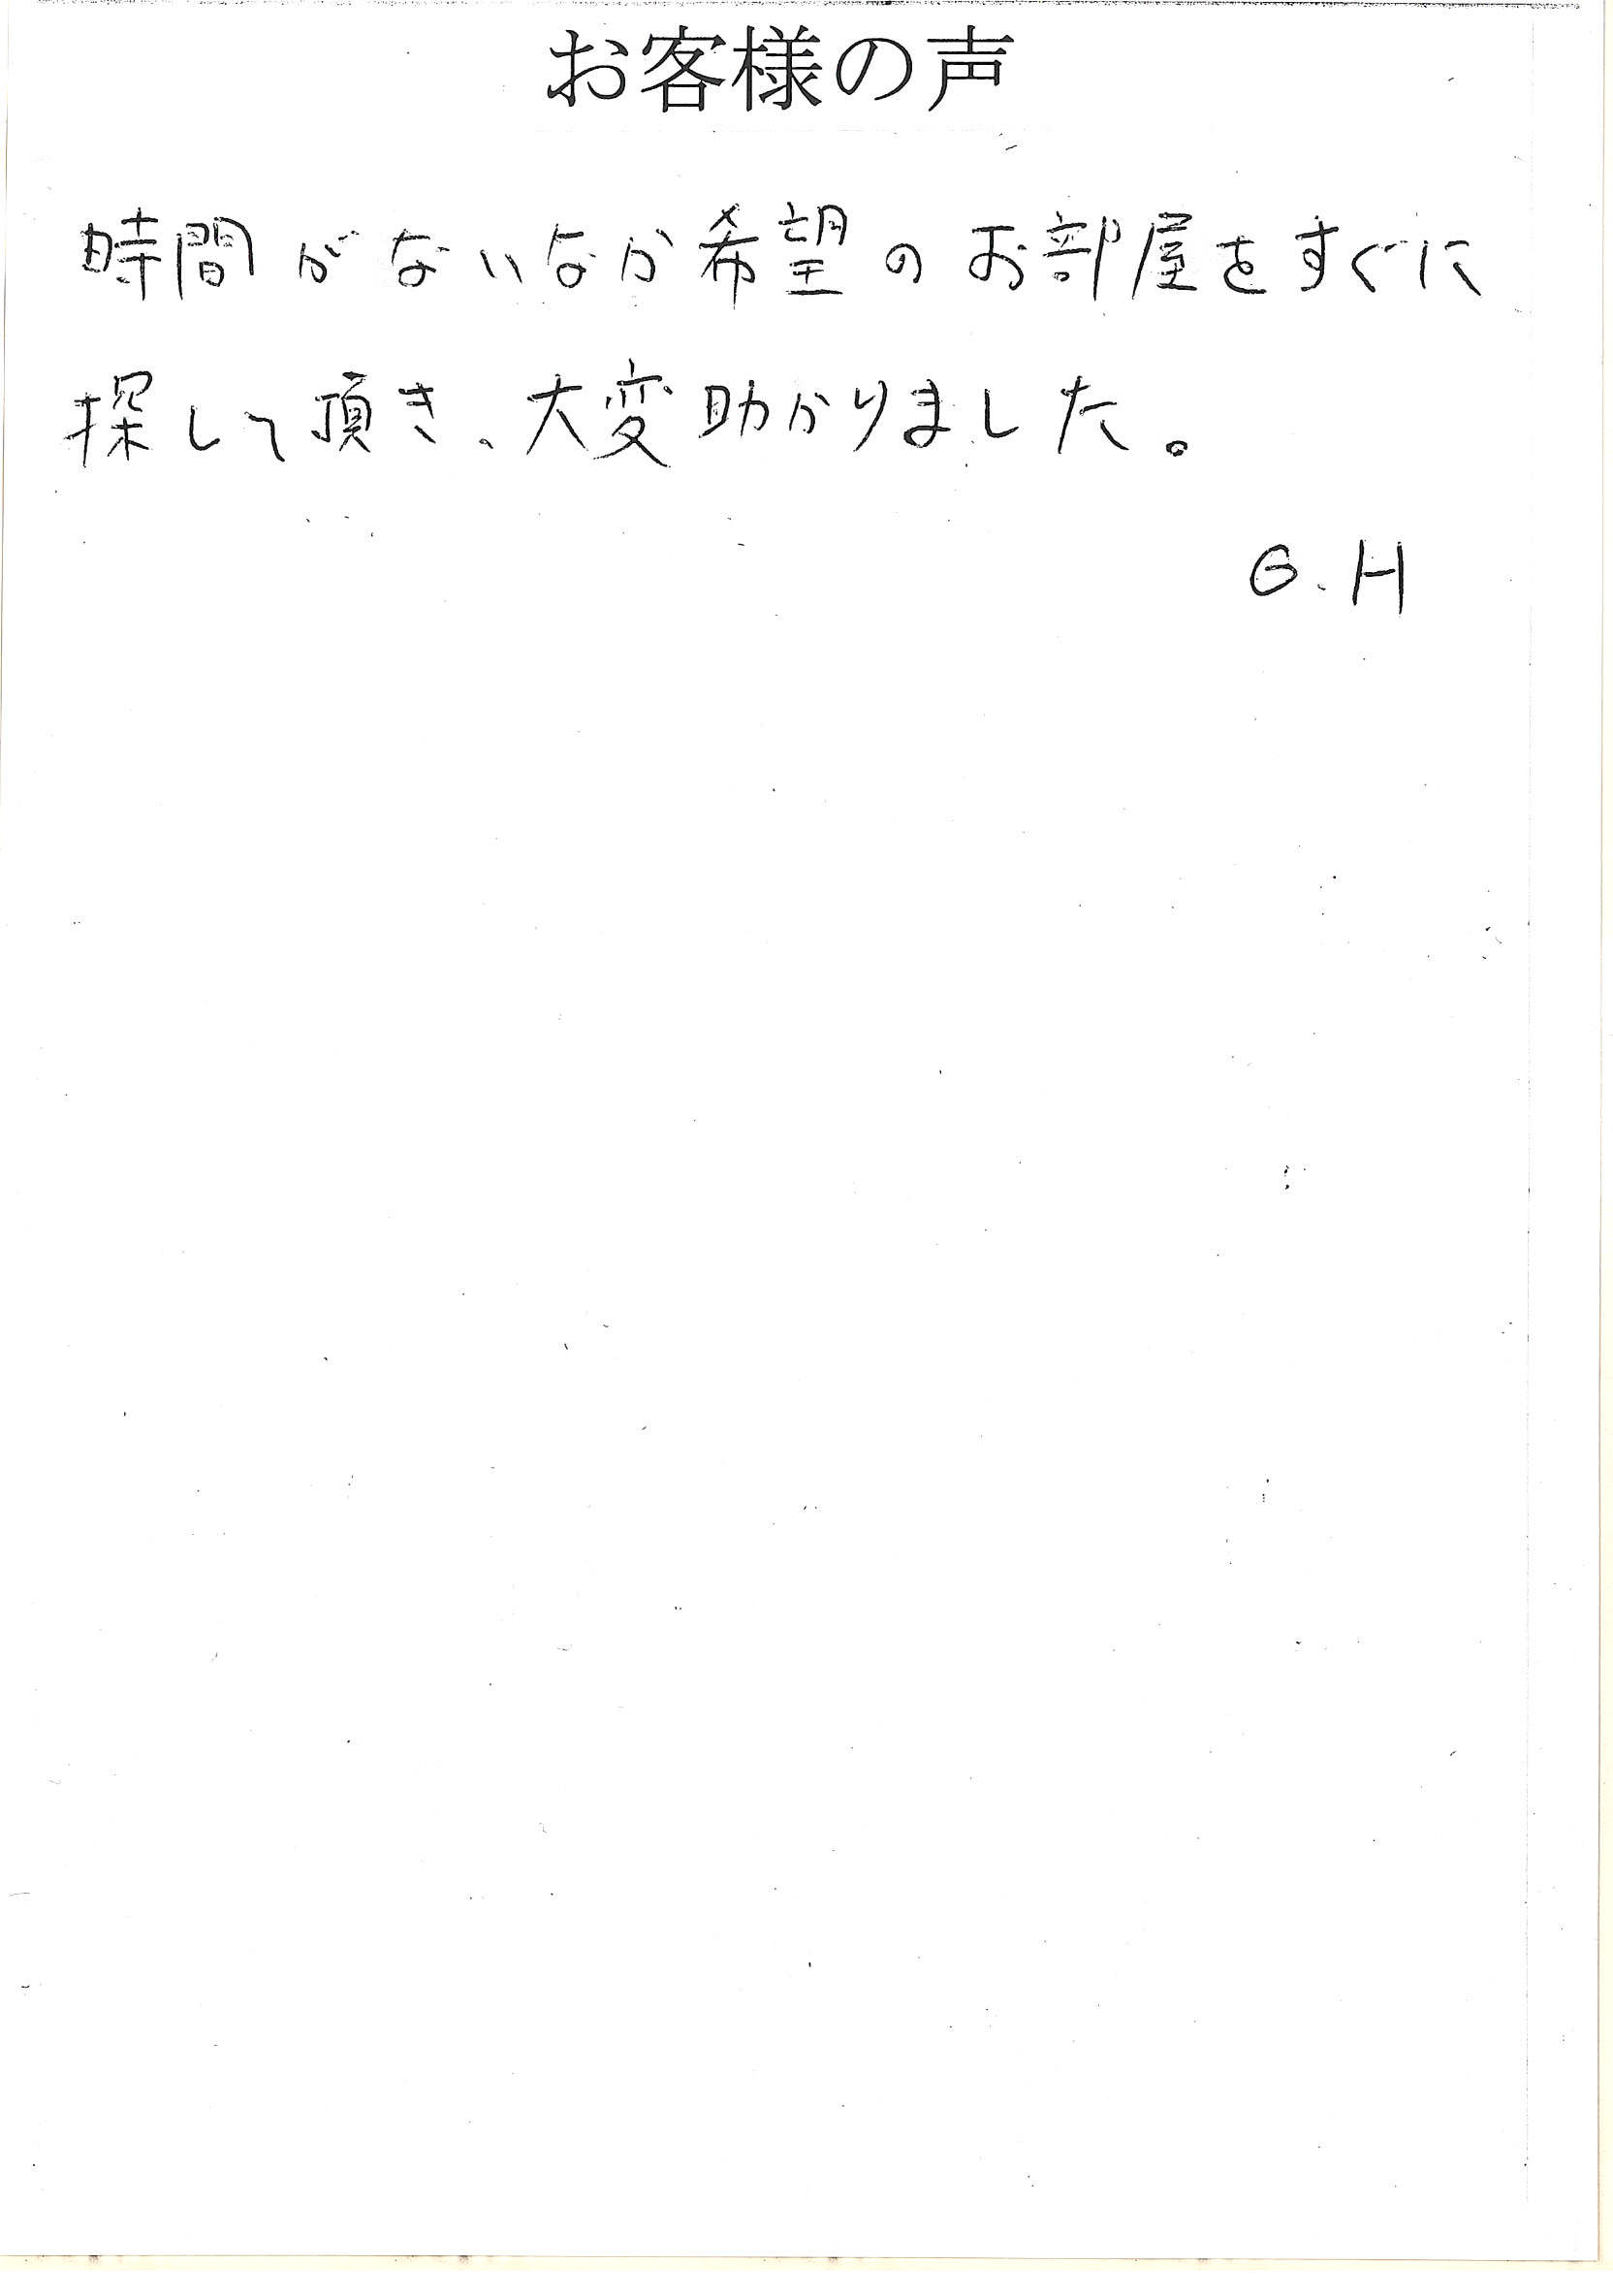 お客様の声
時間がないなか希望のお部屋をすぐに
探して頂き、大変助かりました。
G.H